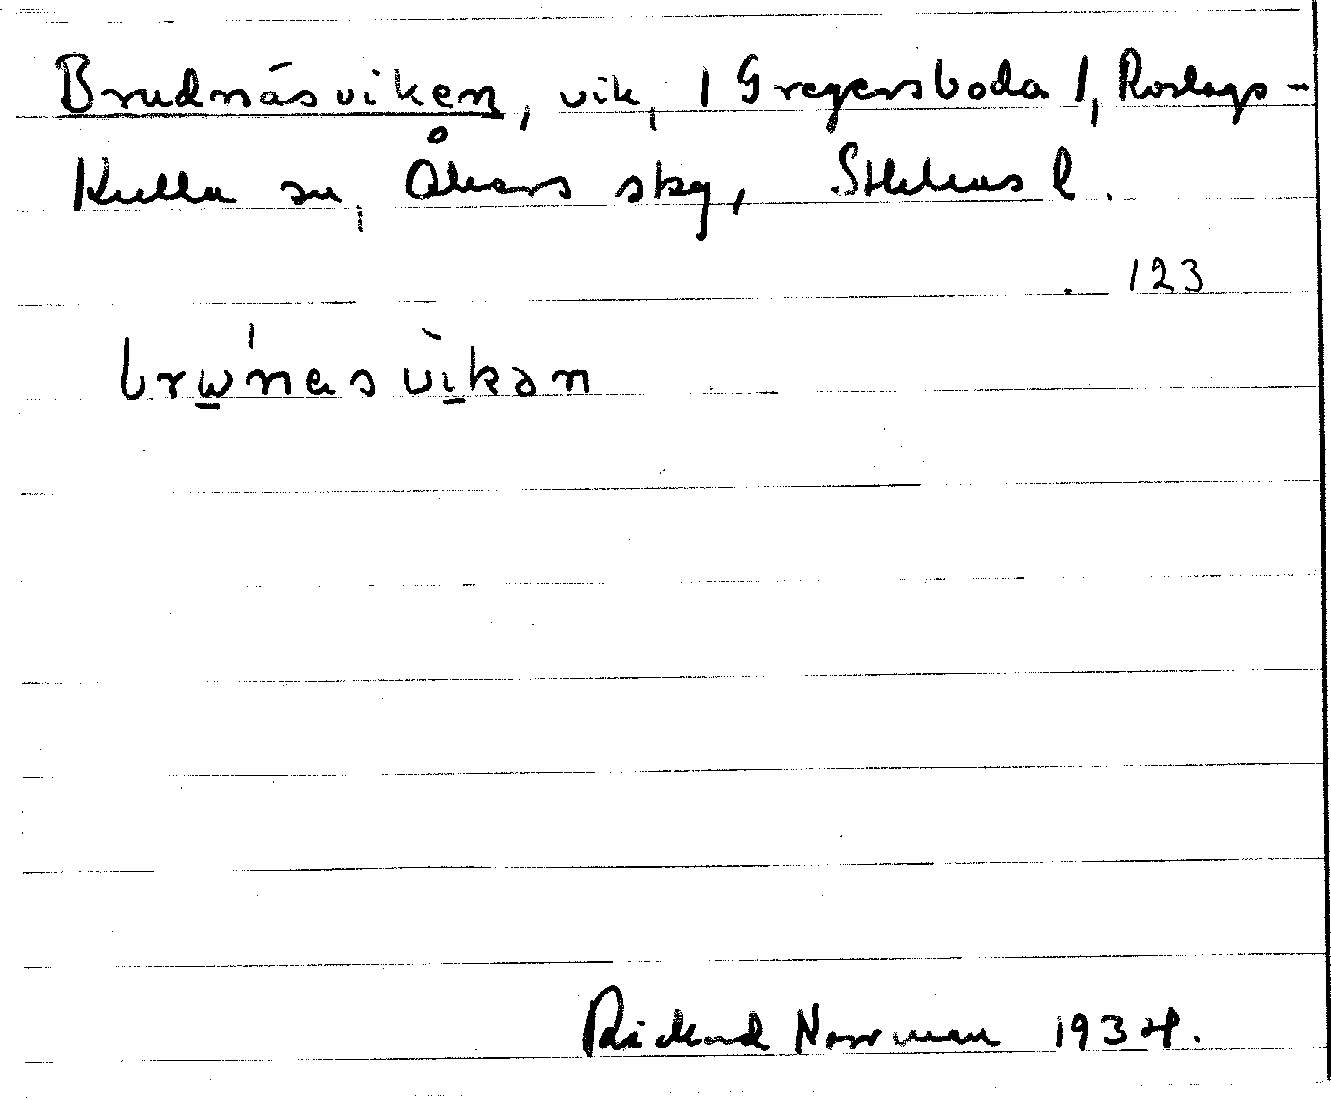 Brudnäsviken, vik, / Gregersboda /, Roslags-
Kulla sn, Åkers skg, Sthlms l.
123
brω̲'nεsvì̲kən
Rickard Norrman 1934.